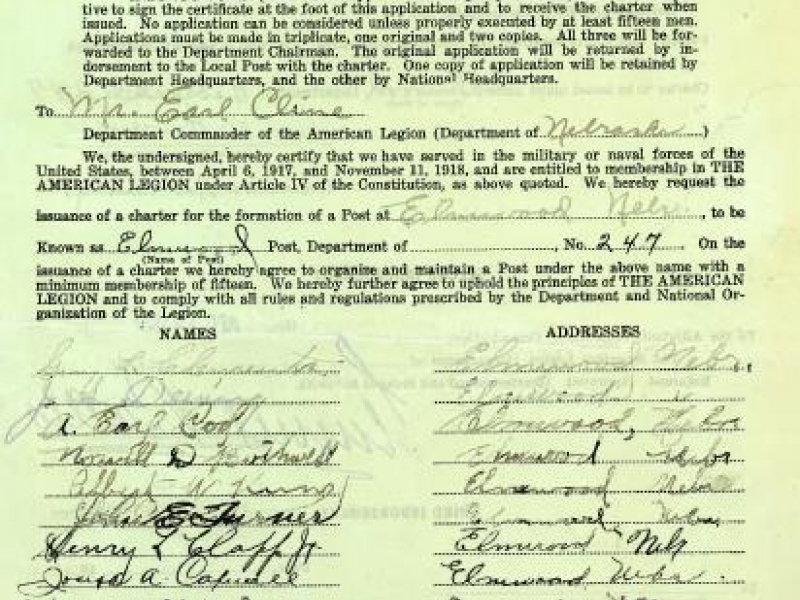 tive to sign the certificate at the foot of this application and to receive the charter when
issued. No application can be considered unless properly executed by at least fifteen men.
Applications must be made in triplicate, one original and two copies. All three will be for-
warded to the Department Chairman. The original application will be returned by in-
dorsement to the Local Post with the charter. One copy of application will be retained by
Department Headquarters, and the other by National Headquarters.
To Mr. Earl Cline
Department Commander of the American Legion (Department of Nebraska)
We, the undersigned, hereby certify that we have served in the military or naval forces of the
United States, between April 6, 1917, and November 11, 1918, and are entitled to membership in THE
AMERICAN LEGION under Article IV of the Constitution, as above quoted. We hereby request the
issuance of a charter for the formation of a Post at Elmwood Nebr, to be
Known as Elmwood Post, Department of , No. 247 On the
(Name of Post)
issuance of a charter we hereby agree to organize and maintain a Post under the above name with a
minimum membership of fifteen. We hereby further agree to uphold the principles of THE AMERICAN
LEGION and to comply with all rules and regulations prescribed by the Department and National Or-
ganization of the Legion.
NAMES ADDRESSES
Clements Elmwood Nebr.
Elmwood "
A. Earl Elmwood, Nebr
D Elmwood Nebr
W Elmwood Nebr
John E. Turner Elmwood Nebr
Henry L Clapp Jr. Elmwood Neb
A Elmwood Nebr.